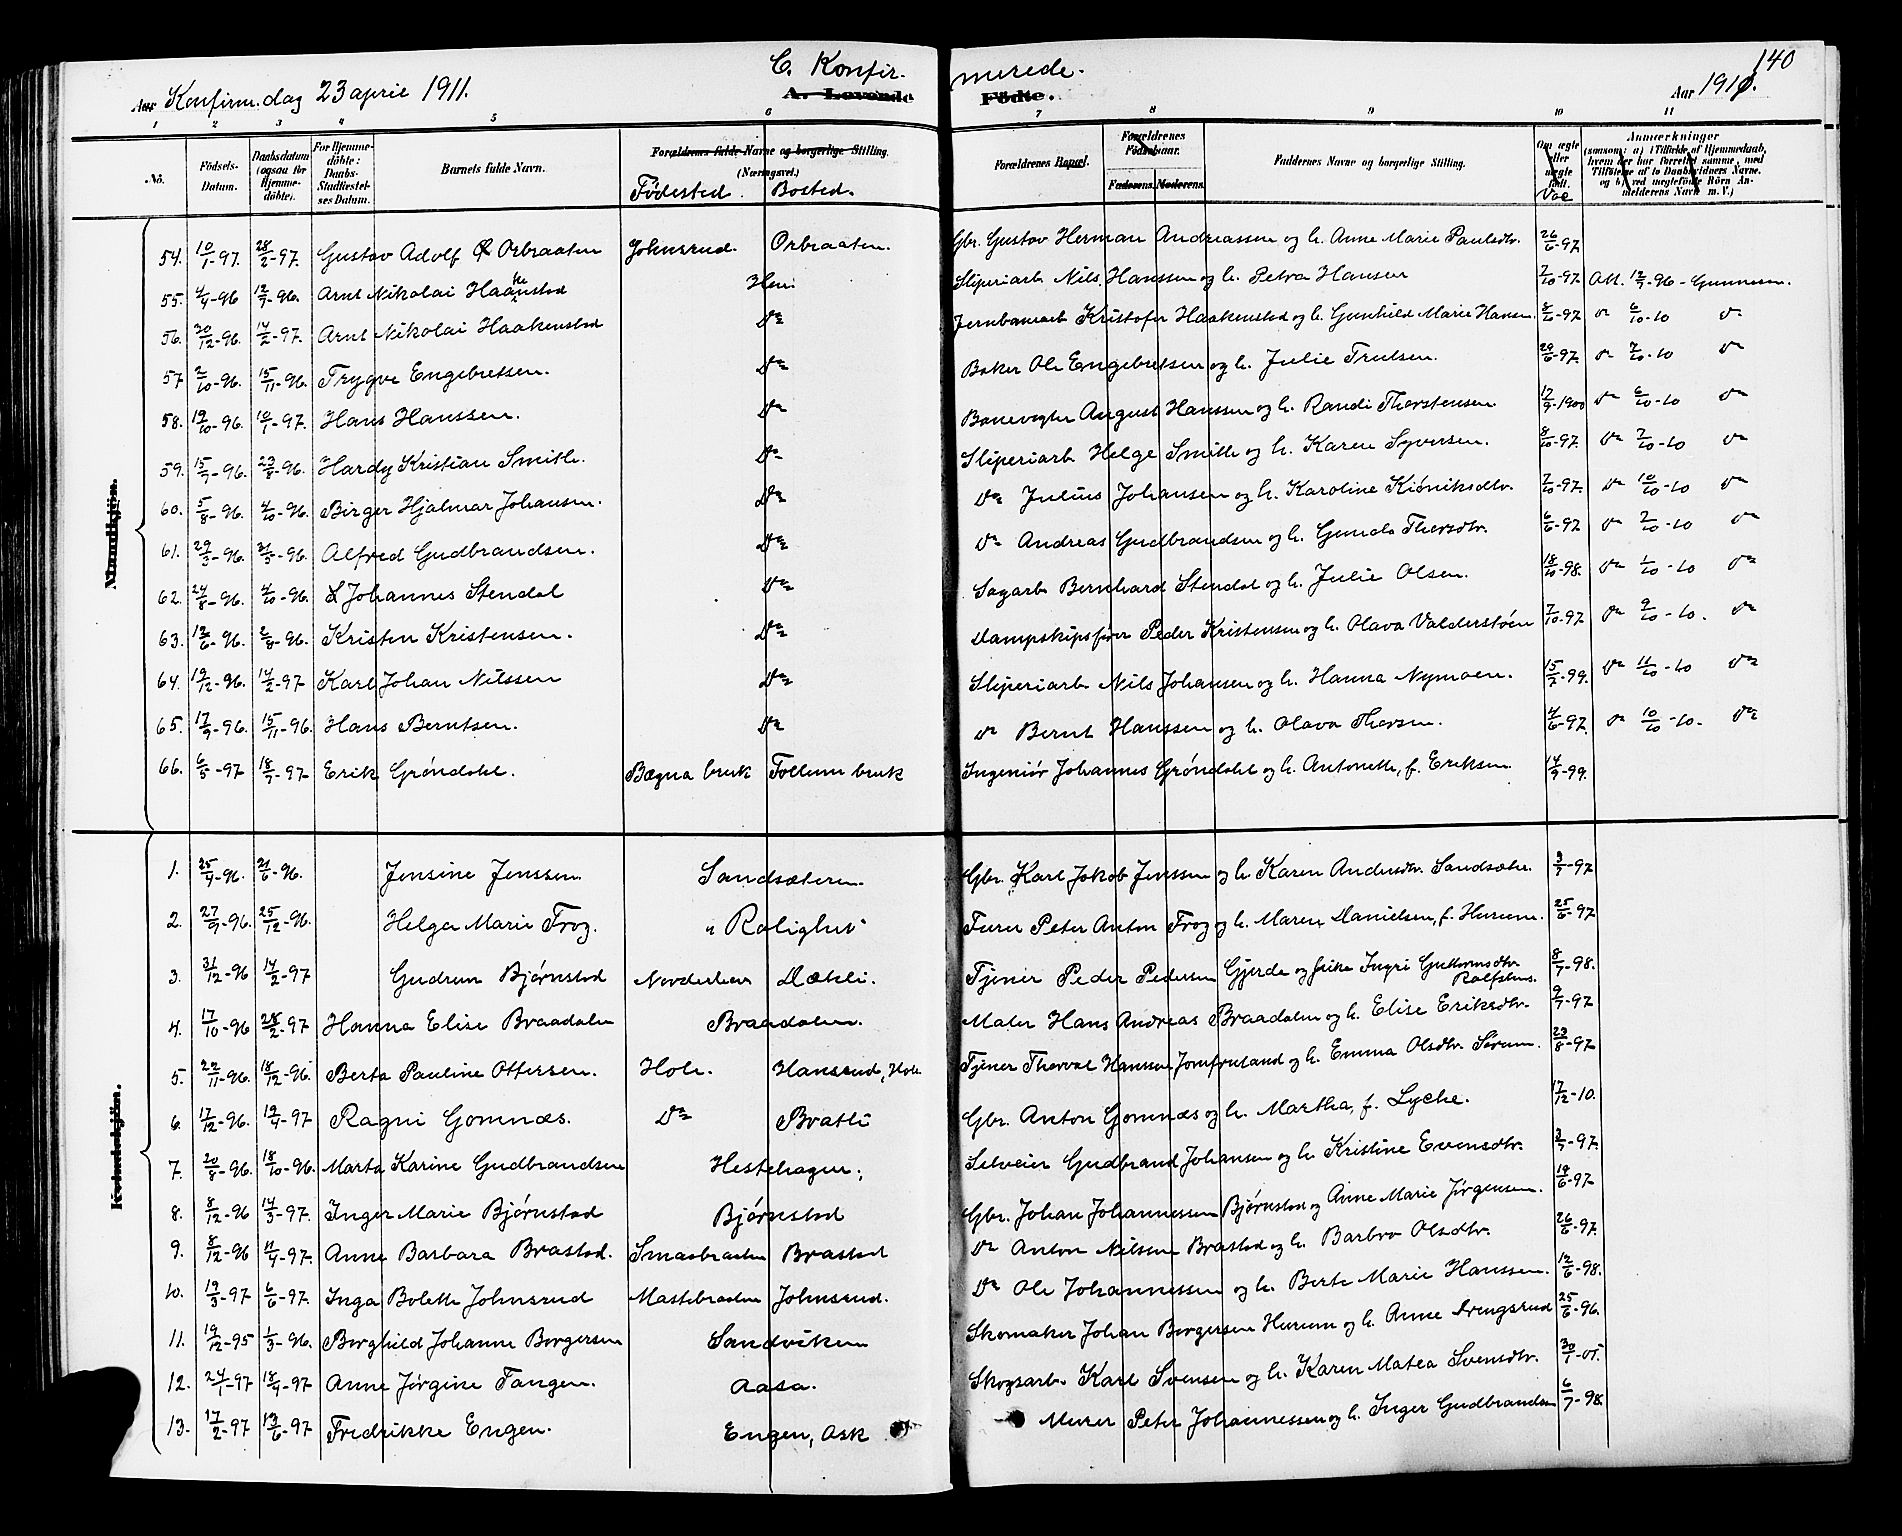 140
C. Konfirmerede.
A. Levende Födte.
Aar Konfirm.dag 23 april 1911.
Aar 1910.
1 2 3 4 5 6 7 8 9 10 11
No. Födsels-Datum. Daabsdatum (ogsaa for Hjemme-döbte). For Hjemme-döbte: Daabs-Stadfæstel-ses Datum. Barnets fulde Navn. Forældrenes fulde Navne og borgerlige Stilling. (Næringsvei.) Födested. Bosted. Forældrenes Bopæl. Forældrenes Födselsaar. Faderens. Moderens. Faddernes Navne og borgerlige Stilling. Om ægte eller uægte født. Vac Anmærkninger (saasom: a) i Tilfælde af Hjemmedaab, hvem der har forrettet samme, med Tilföielse af to Daabsvidners Navne. og b) ved uægtefödte Börn Anmelderens Navn m. V.)
Mandkjön.
54. 10/1-97. 28/2-97. Gustav Adolf Orbraaten Johnsrud. Orbraaten. Gbr. Gustav Herman Andreassen og h. Anne Marie Paulsdtr. 26/6-97
55. 4/4-96 12/7-96. Arnt Nikolai Haanstad Hen. Sliperiarb Nils Hanssen og h. Petra Hansen 7/10-97 Att. 12/7-96 - Gunnesen.
56. 20/12-96. 14/2-97. Arnt Nikolai Haakenstad Do Jernbanearb Kristofer Haakenstad og h. Gunhild Marie Hansen. 8/10-97 do 6/10-10 do
57 2/10-96. 15/11-96. Trygve Engebretsen. Do Baker Ole Engebretsen og h. Julie Trulsen. 29/6-97. do 7/10-10 do
58. 19/10-96. 10/1-97. Hans Hanssen. Do Banevogter August Hanssen og h. Randi Thorstensen. 17/9-1900 do 6/10-10 do
59. 15/7-96. 23/8-96. Hardy Kristian Smith. Do Sliperiarb Helge Smith og h. Karen Syversen. 8/10-97. do 7/10-10 do
60. 5/8-96. 4/10-96. Birger Hjalmar Johansen. Do do Julius Johansen og h. Karoline Kiøniksdtr. 7/10-97. do 10/10-10 do
61. 29/3-96. 31/5-96. Alfred Gudbrandsen. Do do Andreas Gudbrandsen og h. Gunda Thorsdtr. 6/6-97 do 7/10-10 do
62. 24/8-96. 4/10-96. Johannes Stendal Do Sagarb Bernhard Stendal og h. Julie Olsen. 18/10-98. do 1/10-10 do
63. 12/6-96. 2/8-96. Kristen Kristensen. Do Dampskipsfører Peder Kristensen og h. Olava Valderstøen 7/10-97 do 9/10-10. do
64. 19/12-96. 14/2-97 Karl Johan Nilssen Do Sliperiarb Nils Johansen og h. Hanna Nymoen. 15/7-99. do 11/10-10 do
65. 17/9-96. 15/11-96. Hans Berntsen. Do do Bernt Hanssen og h. Olava Thorsen. 4/6-97. do 10/10-10. do
66. 6/5-97 18/7-97 Erik Grøndahl. Bægna bruk Follum bruk Ingeniør Johannes Grøndahl og h. Antonette, f. Eriksen 14/9-99.
Kvindekjön.
1. 25/4-96. 21/6-96. Jensine Jenssen. Sandsæteren. Gbr. Karl Jakob Jenssen og h. Karen Andersdtr. Sandsæter. 3/7-97
2. 27/9-96. 25/12-96. Helga Marie Frog. " Rolighet " Furer Peter Anton Frog og h. Maren Danielsen, f. Hurum. 25/6-97
3. 31/12-96 14/2-97 Gudrun Bjørnstad Norderhov Dæhli. Tjener Peder Pedersen Gjerde og pike Ingri Guttormsdtr. Rolfshus. 8/7-98.
4. 17/10-96 28/2-97 Hanna Elise Braadalen Braadalen. Maler Hans Andreas Braadalen og h. Elise Eriksdtr. 9/7-97
5. 22/11-96. 18/12-96. Berta Pauline Ottersen. Hole. Hansrud, Hole Tjener Thorval Hanssen Jomfruland og h. Emma Olsdtr. Sørum. 23/8-97
6. 17/12-96. 19/4-97 Ragni Gomnæs. Do Bratli Gbr. Anton Gomnæs og h. Martha, f. Lyche. 17/12-10.
7. 20/8-96. 18/10-96. Marta Karine Gudbrandsen Hestehagen. Selveier Gudbrand Johansen og h. Kristine Evensdtr. 3/7-97.
8. 8/12-96 14/3-97. Inger Marie Bjørnstad Bjørnstad Gbr. Johan Johannessen Bjørnstad og Anne Marie Jørgensen. 19/6-97
9. 8/12-96 11/4-97. Anne Barbara Brastad. Smaabraaten Brastad do Anton Nilsen Brastad og h. Barbro Olsdtr. 26/6-97.
10. 19/3-97 6/6-97. Inga Bolette Johnsrud Mastebraaten Johnsrud. Do Ole Johannessen og h. Berte Marie Hanssen. 12/6-98.
11. 19/12-95 1/3-96. Borghild Johanne Borgersen Sandviken Skomaker Johan Borgersen Hurum og h. Anne 25/6-96.
12. 24/1-97 18/4-97 Anne Jørgine Tangen. Aasa. Skogsarb. Karl Svensen og h. Karen Matea Svensdtr. 30/1-05.
13. 17/2-97 13/6-97 Fredrikke Engen. Engen, Ask Murer Peter Johannessen og h. Inger Gudbrandsen 6/7-98.